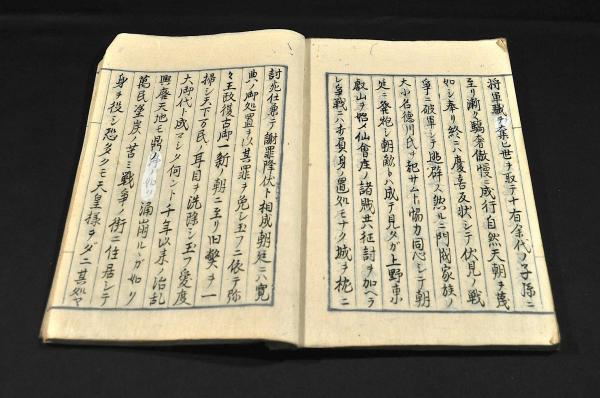 将軍職ヲ奪ヒ世ヲ取テ十有余代ノ子孫ニ
至リ漸々驕奢傲慢ニ成行自然天朝ヲ蔑
如シ奉リ終ニハ慶喜反状シテ伏見ノ戦
争ニ破軍シテ逃辟ス然ルニ門閥家族ノ
大小名徳川氏ヲ 協力同心シテ朝
廷ニ発炮シ朝敵トハ成テ見タガ上野東
叡山ヲ始メ仙會庄ノ諸賊共征討ヲ加ヘラ
レ争戦ニハ方員身ノ置処モナク城ヲ枕ニ
討死仕兼テ謝罪降伏ト相成朝廷ニハ寛
典ノ御処置ヲ以其罪ヲ免シ玉フニ依テ弥
々王政復古御一新ノ朝ニ至リ旧弊ヲ一
掃シ天下万民ノ耳目ヲ洗除シ玉フ愛度
大御代ト成マシタ何ント千年以来ノ治乱
興廃天地モ鼎 ノ如ク涌崩ルヽガ如リ
萬民塗炭ノ苦ミ戦争ノ街ニ住居シテ
身ヲ投シ恐多クモ天皇様ヲダニ其如ヤ